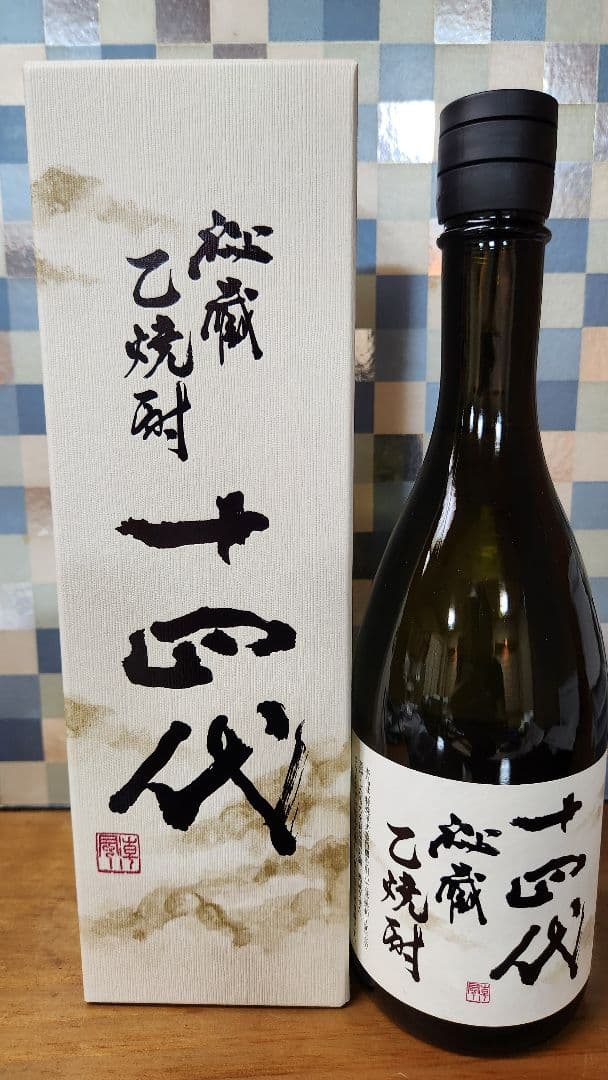 秘蔵
乙焼酎
十四代
十四代
秘蔵
乙焼酎